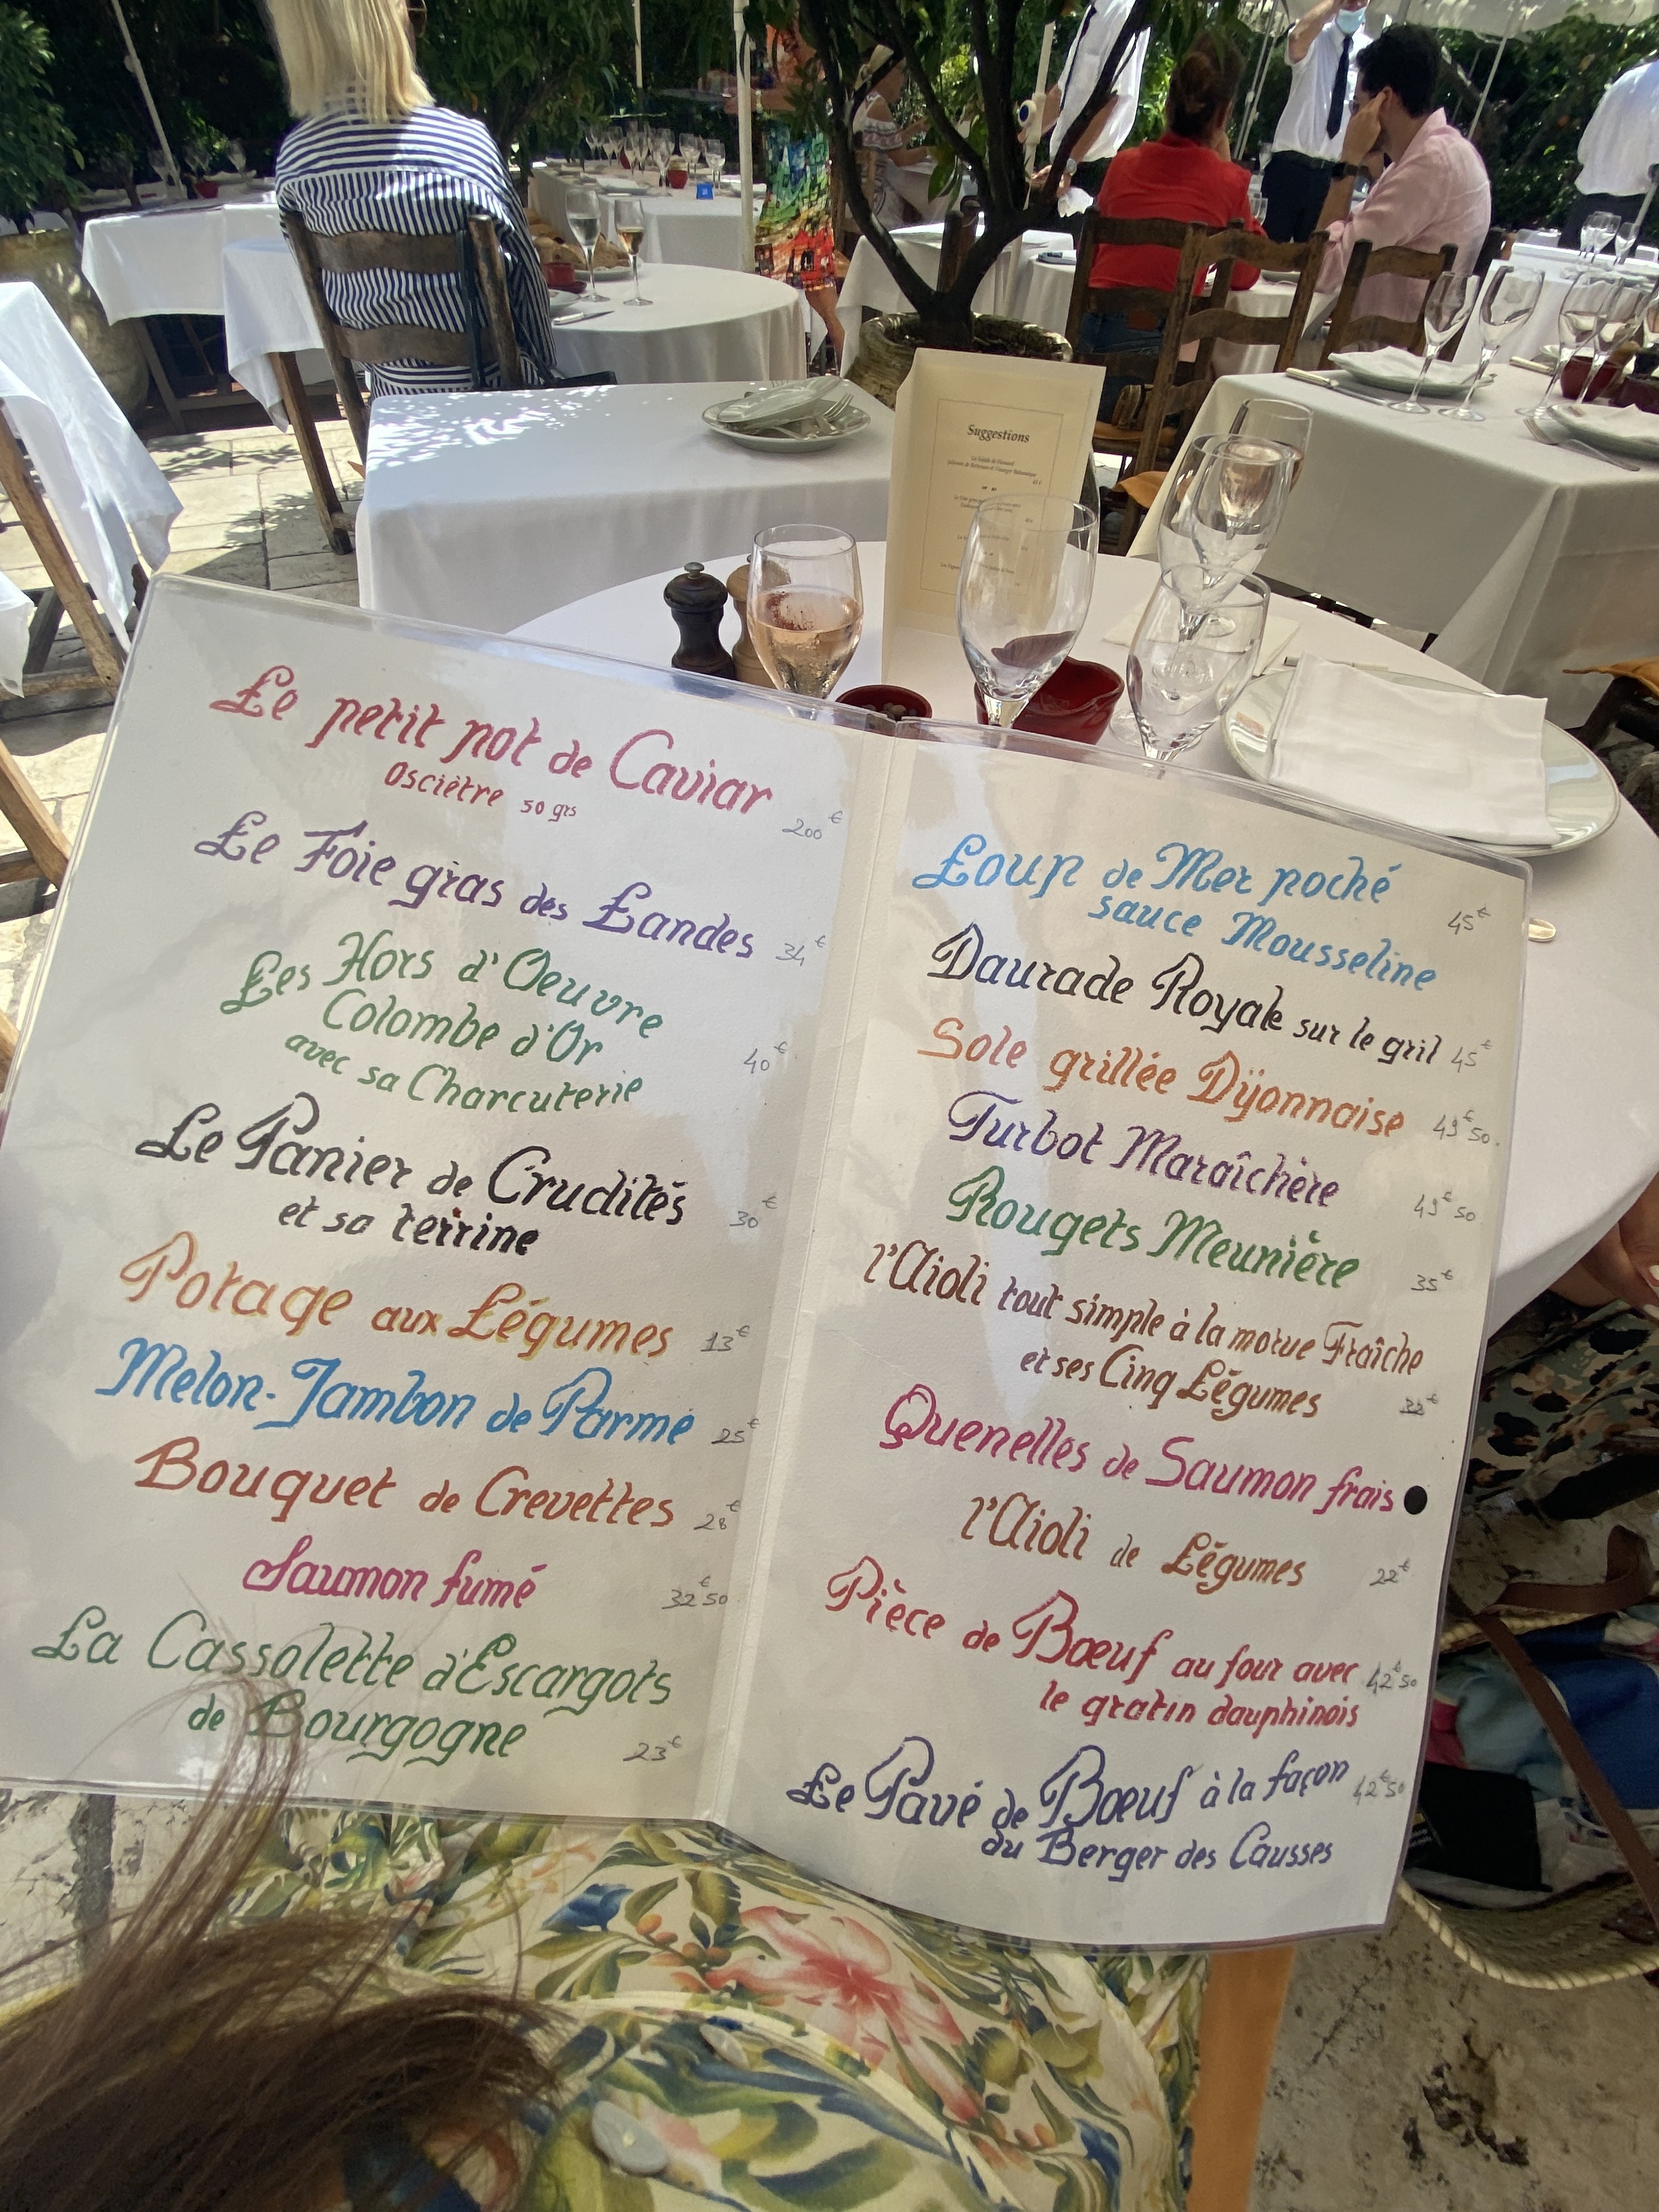 Suggestions
Le petit pot de Caviar
Osciètre 50 grs
200€
Le Foie gras des Landes 34€
Les Hors d'Oeuvre
Colombe d'Or
avec sa Charcuterie
40€
Le Panier de Crudités
et sa terrine
30€
Potage aux Légumes 13€
Melon-Jambon de Parme 25€
Bouquet de Crevettes 28€
Saumon fumé 32€50
La Cassolette d'Escargots
de Bourgogne 23€
Loup de Mer poché
sauce Mousseline
45€
Daurade Royale sur le gril 45€
Sole grillée Dijonnaise 49€50
Turbot Maraîchère 49€50
Rougets Meunière 35€
l'Aioli tout simple à la morue Fraîche
et ses Cinq Légumes
Quenelles de Saumon frais
l'Aioli de Légumes 22€
Pièce de Bœuf au four avec 42€50
le gratin dauphinois
Le Pavé de Bœuf à la façon 42€50
du Berger des Causses